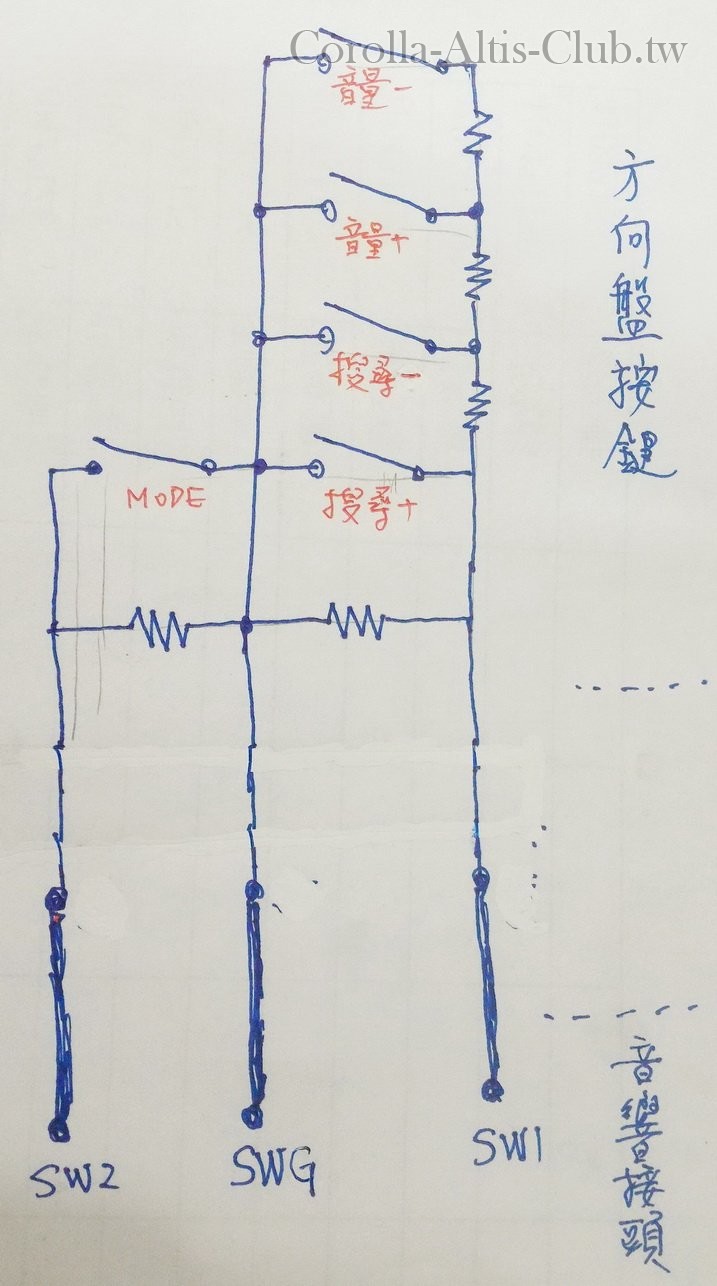 Corolla-Altis-Club.tw
音量-
音量+
搜尋-
搜尋+
MODE
方向盤按鍵
SW2
SWG
SW1
音響接頭